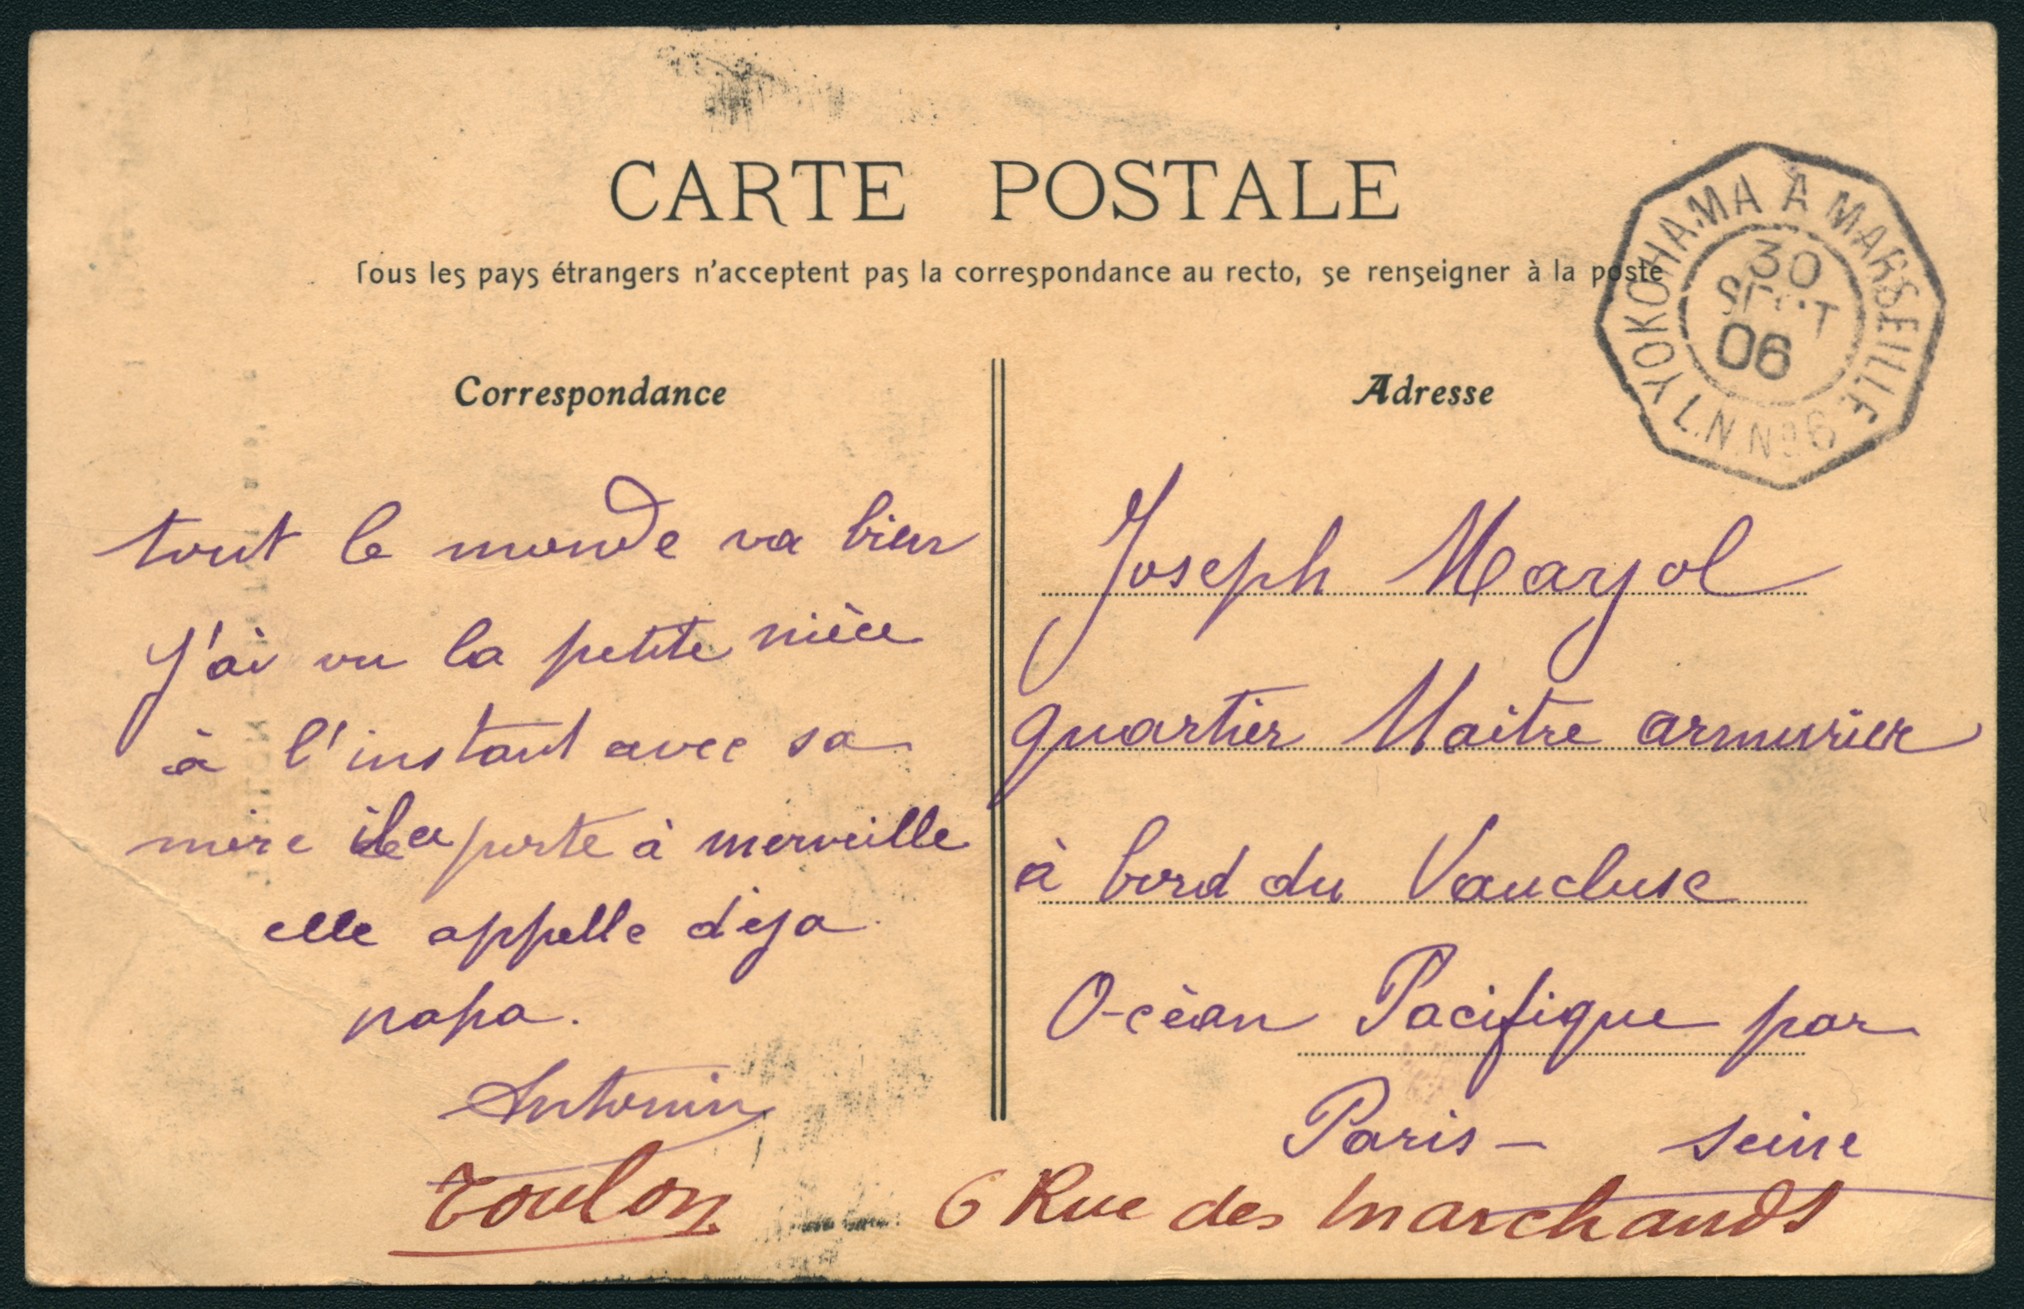 CARTE POSTALE
Tous les pays étrangers n'acceptent pas la correspondance au recto, se renseigner à la poste
YOKOHAMA À MARSEILLE
30
SEPT
06
L.N Nº6
Correspondance
tout le monde va bien
J'ai vu la petite nièce
à l'instant avec sa
mère porte à merveille
elle appelle déja
papa.
Antonin
Toulon
Adresse
Joseph Mayol
quartier Maitre armurier
à bord du Vaucluse
Océan Pacifique par
Paris - Seine
6 Rue des Marchands